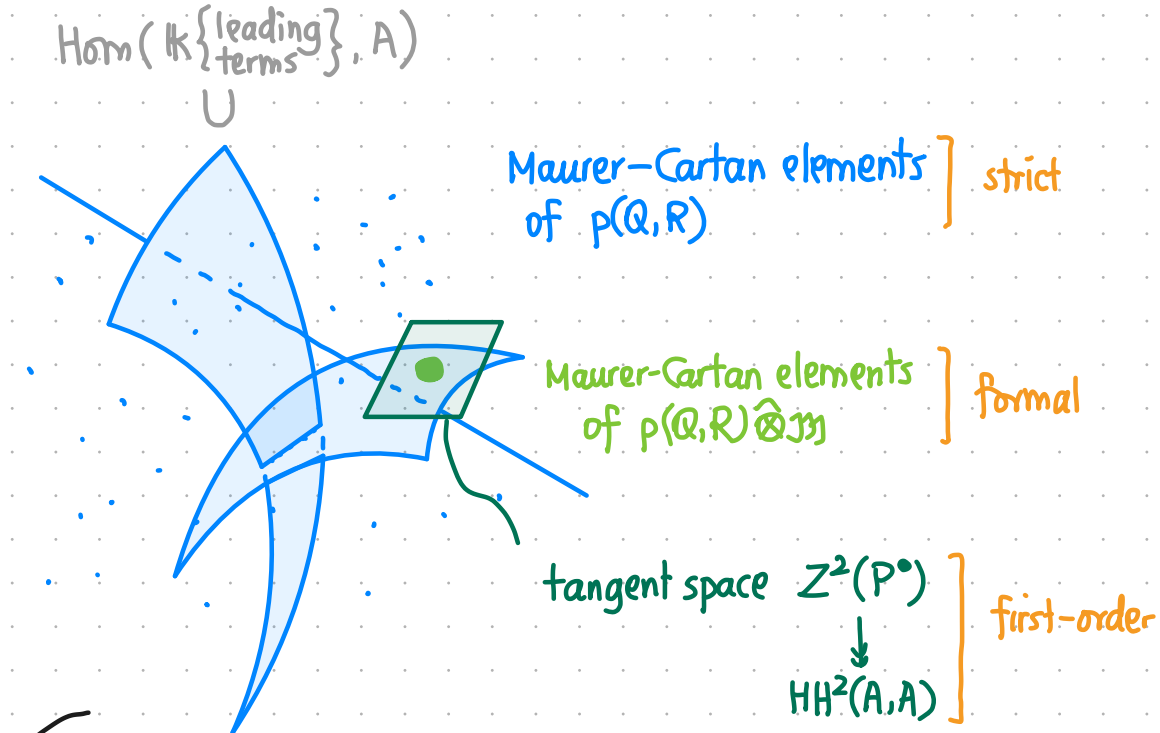 Hom(𝕜{leading terms}, A)
∪
Maurer-Cartan elements
of p(Q,R)
strict
Maurer-Cartan elements
of p(Q,R) ⊗̂ 𝔪
formal
tangent space Z²(P•)
↓
HH²(A,A)
first-order